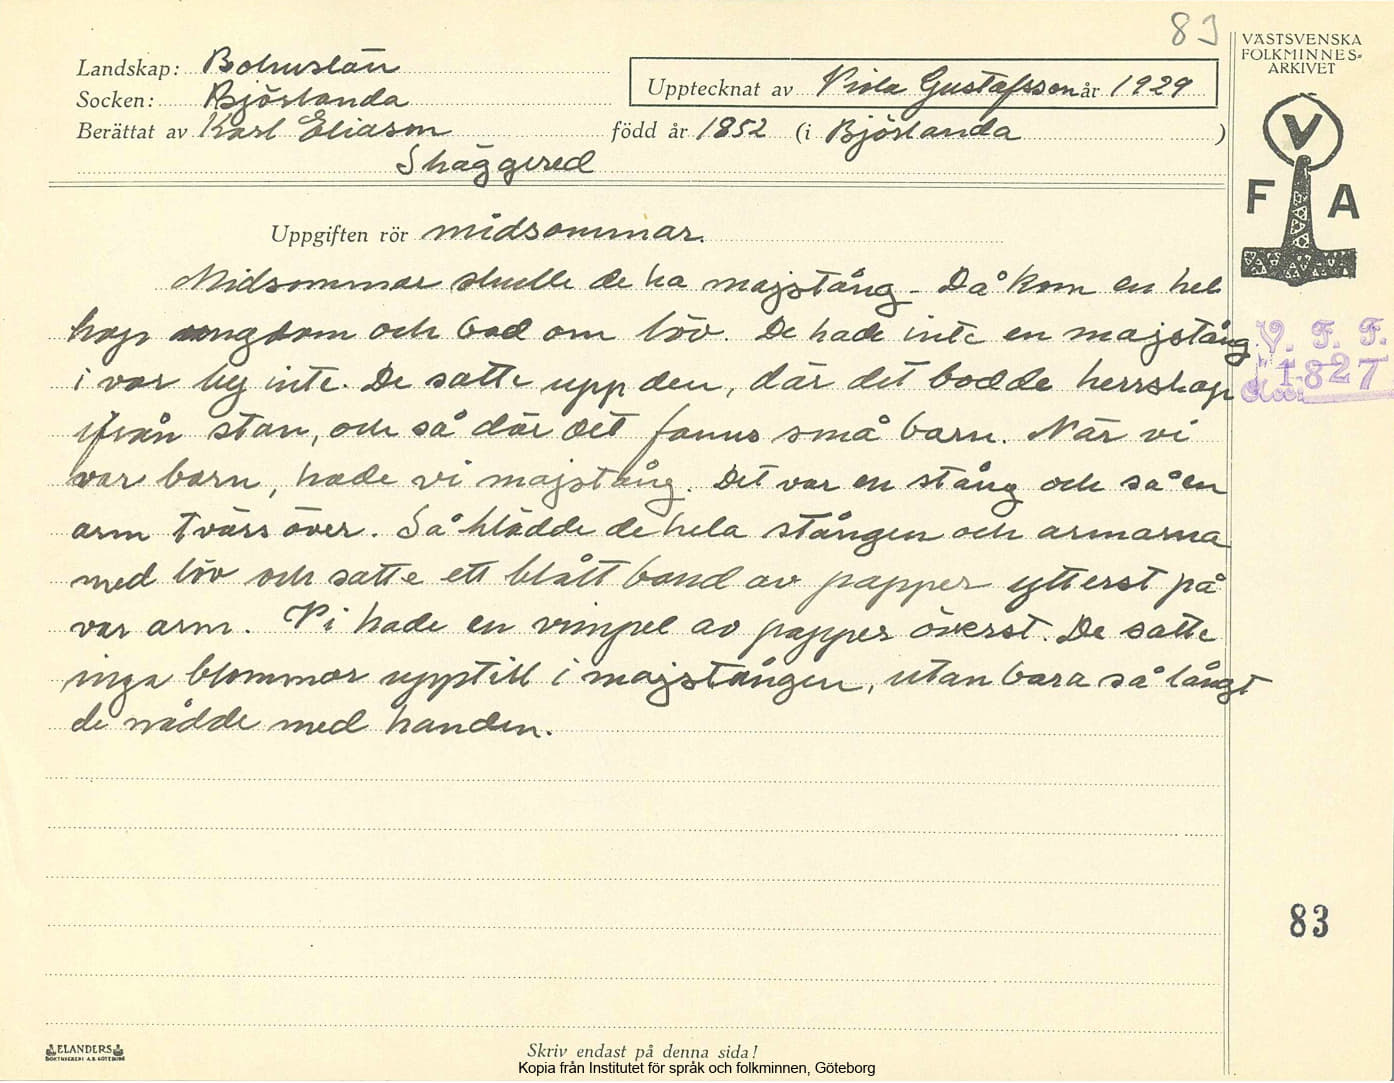 83
VÄSTSVENSKA
FOLKMINNES=
ARKIVET
Landskap: Bohuslän
Socken: Björlanda
Upptecknat av Viola Gustafsson år 1929
Berättat av Karl Eliason född år 1852 (i Björlanda )
Skäggered
V
F A
Uppgiften rör midsommar.
Midsommar skulle de ha majstång - Då kom en hel
hop ungdom och bad om löv. De hade inte en majstång
i var by inte. De satte upp den, där det bodde herrskap
ifrån stan, och så där det fanns små barn. När vi
var barn, hade vi majstång. Det var en stång och så en
arm tvärs över. Så klädde de hela stången och armarna
med löv och satte ett blått band av papper ytterst på
var arm. Vi hade en vimpel av papper överst. De satte
inga blommor upptill i majstången, utan bara så långt
de nådde med handen.
V. F. F.
1827
83
ELANDERS
BOKTRYCKERI A.B. GÖTEBORG
Skriv endast på denna sida!
Kopia från Institutet för språk och folkminnen, Göteborg